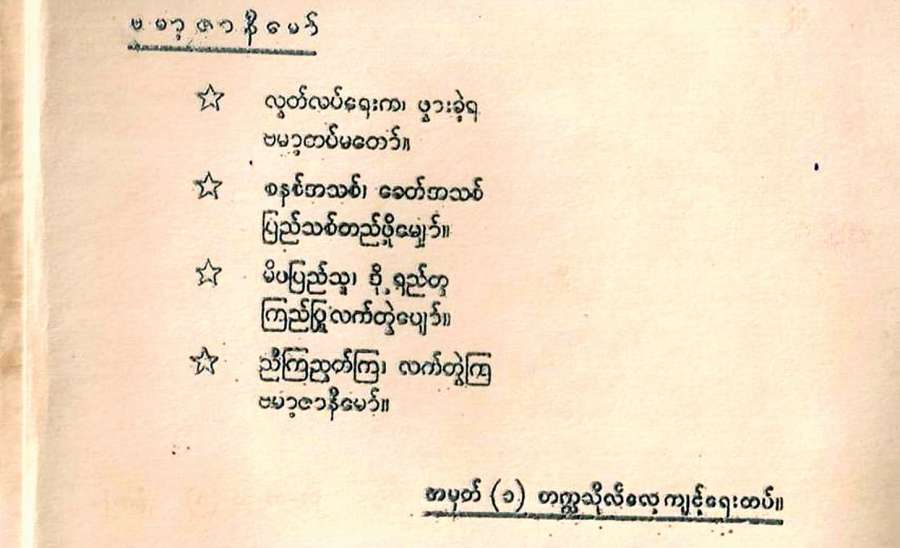 ဗမာ့ဇာနီမော်
☆ လွတ်လပ်ရေးက၊ ဖွားခဲ့ရ
ဗမာ့တပ်မတော်။
☆ စနစ်အသစ်၊ ခေတ်အသစ်
ပြည်သစ်တည်ဖို့မျှော်။
☆ မိပပြည်သူ၊ ဝို့ရည်တူ
ကြည်ဖြူလက်တွဲပျော်။
☆ ညီကြညွတ်ကြ၊ လက်တွဲကြ
ဗမာ့ဇာနီမော်။
အမှတ် (၁) တက္ကသိုလ်လေ့ကျင့်ရေးတပ်။